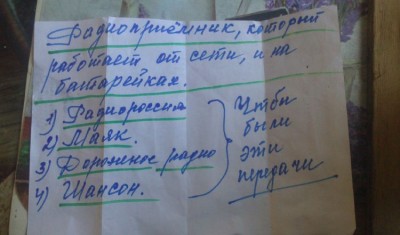 Радиоприёмник, который
работает от сети, и на
батарейках.
1) Радиороссия
2) Маяк.
3) Дорожное радио
4) Шансон.
Чтбы
были
эти
передачи